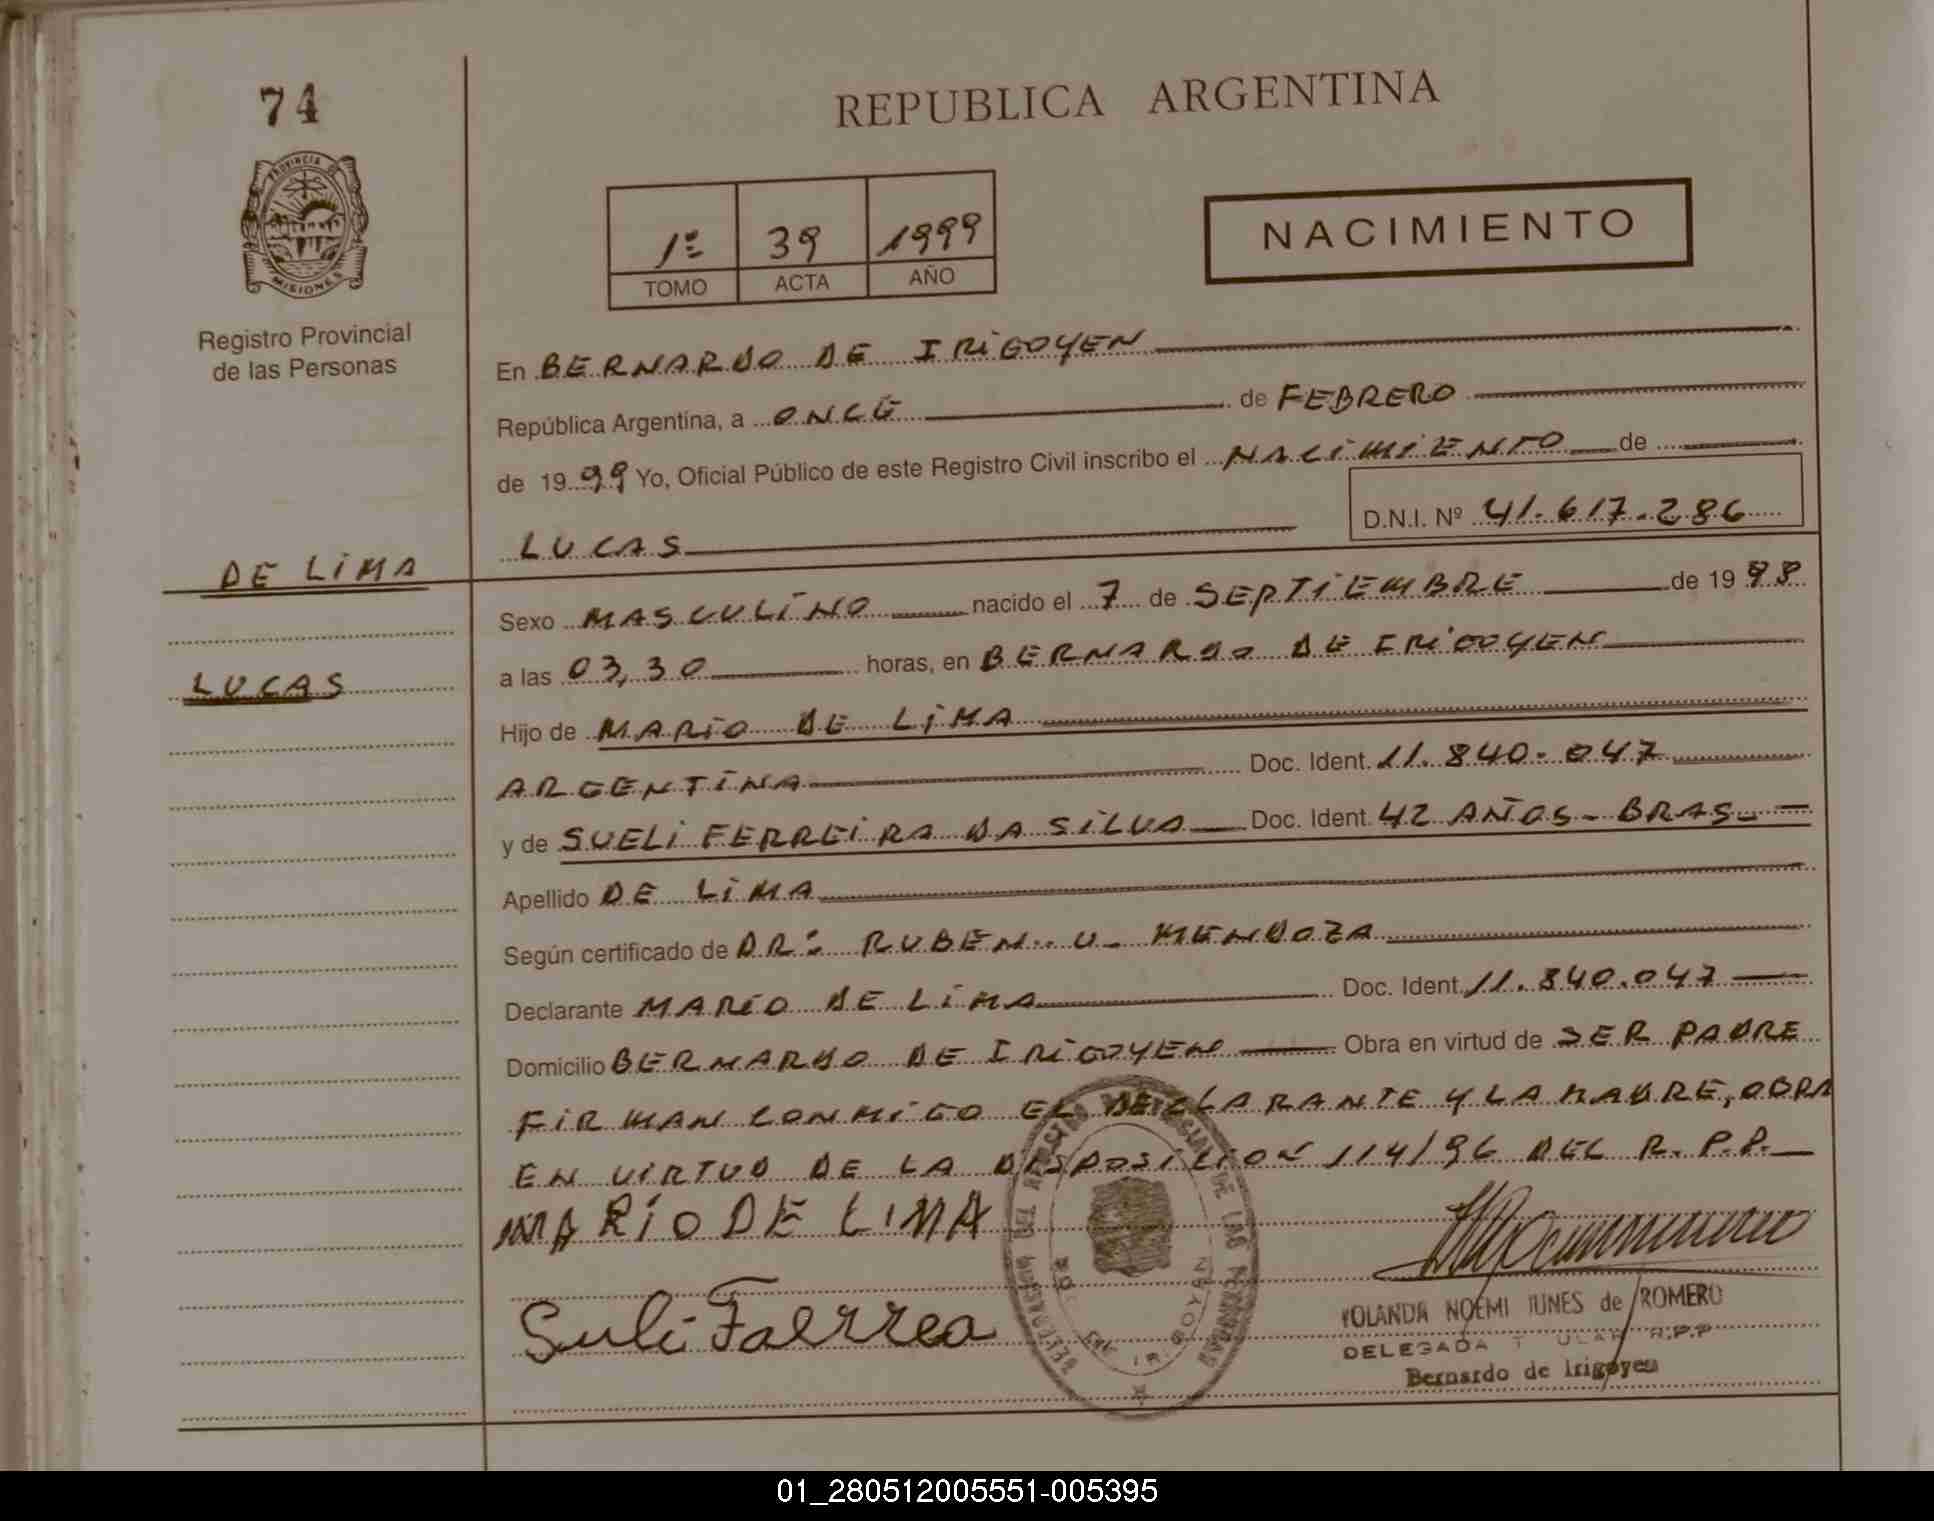 74
REPUBLICA ARGENTINA
PROVINCIA DE
MISIONES
Registro Provincial
de las Personas
1º 39 1999
TOMO ACTA AÑO
NACIMIENTO
En BERNARDO DE IRIGOYEN
República Argentina, a ONCE de FEBRERO
de 1999 Yo, Oficial Público de este Registro Civil inscribo el NACIMIENTO de
LUCAS D.N.I. Nº 41.617.286
DE LIMA
LUCAS
Sexo MASCULINO nacido el 7 de SEPTIEMBRE de 1998
a las 03,30 horas, en BERNARDO DE IRIGOYEN
Hijo de MARIO DE LIMA
ARGENTINA Doc. Ident. 11.840.047
y de SUELI FERREIRA DA SILVA Doc. Ident. 42 AÑOS - BRAS.
Apellido DE LIMA
Según certificado de DR: RUBEN U. MENDOZA
Declarante MARIO DE LIMA Doc. Ident. 11.840.047
Domicilio BERNARDO DE IRIGOYEN Obra en virtud de SER PADRE
FIRMAN CONMIGO EL DECLARANTE Y LA MADRE, OBRA
EN VIRTUD DE LA DISPOSICION 114/96 DEL R.P.P.
MARIO DE LIMA
Suli Faerrea
YOLANDA NOEMI IUNES de ROMERO
DELEGADA TITULAR R.P.P
Bernardo de Irigoyen
01_280512005551-005395